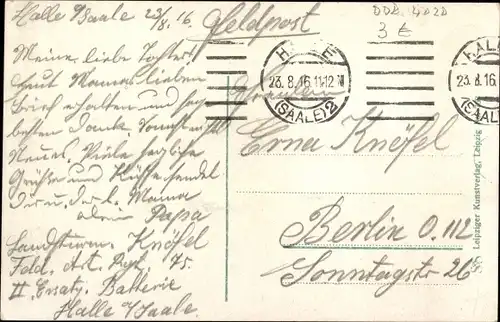 Halle a/Saale 23/8. 16.
Feldpost
DDR 4020
3 €
Meine liebe Tochter!
Heut Mamas lieben
Brief erhalten und sage
besten Dank. Sonst nichts
Neues. Viele herzliche
Grüße und Küsse sendet
Dir u. der l. Mama
dein Papa
Landsturm. Knöfel
Feld. Art. Regt. 75.
II. Ersatz. Batterie
Halle a/Saale.
H E
23.8.16.11-12 V
(SAALE) 2
HALLE
23.8.16.
(SAALE)
Fräulein
Erna Knöfel
Berlin O. 112
Sonntagstr 26
Leipziger Kunstverlag, Leipzig